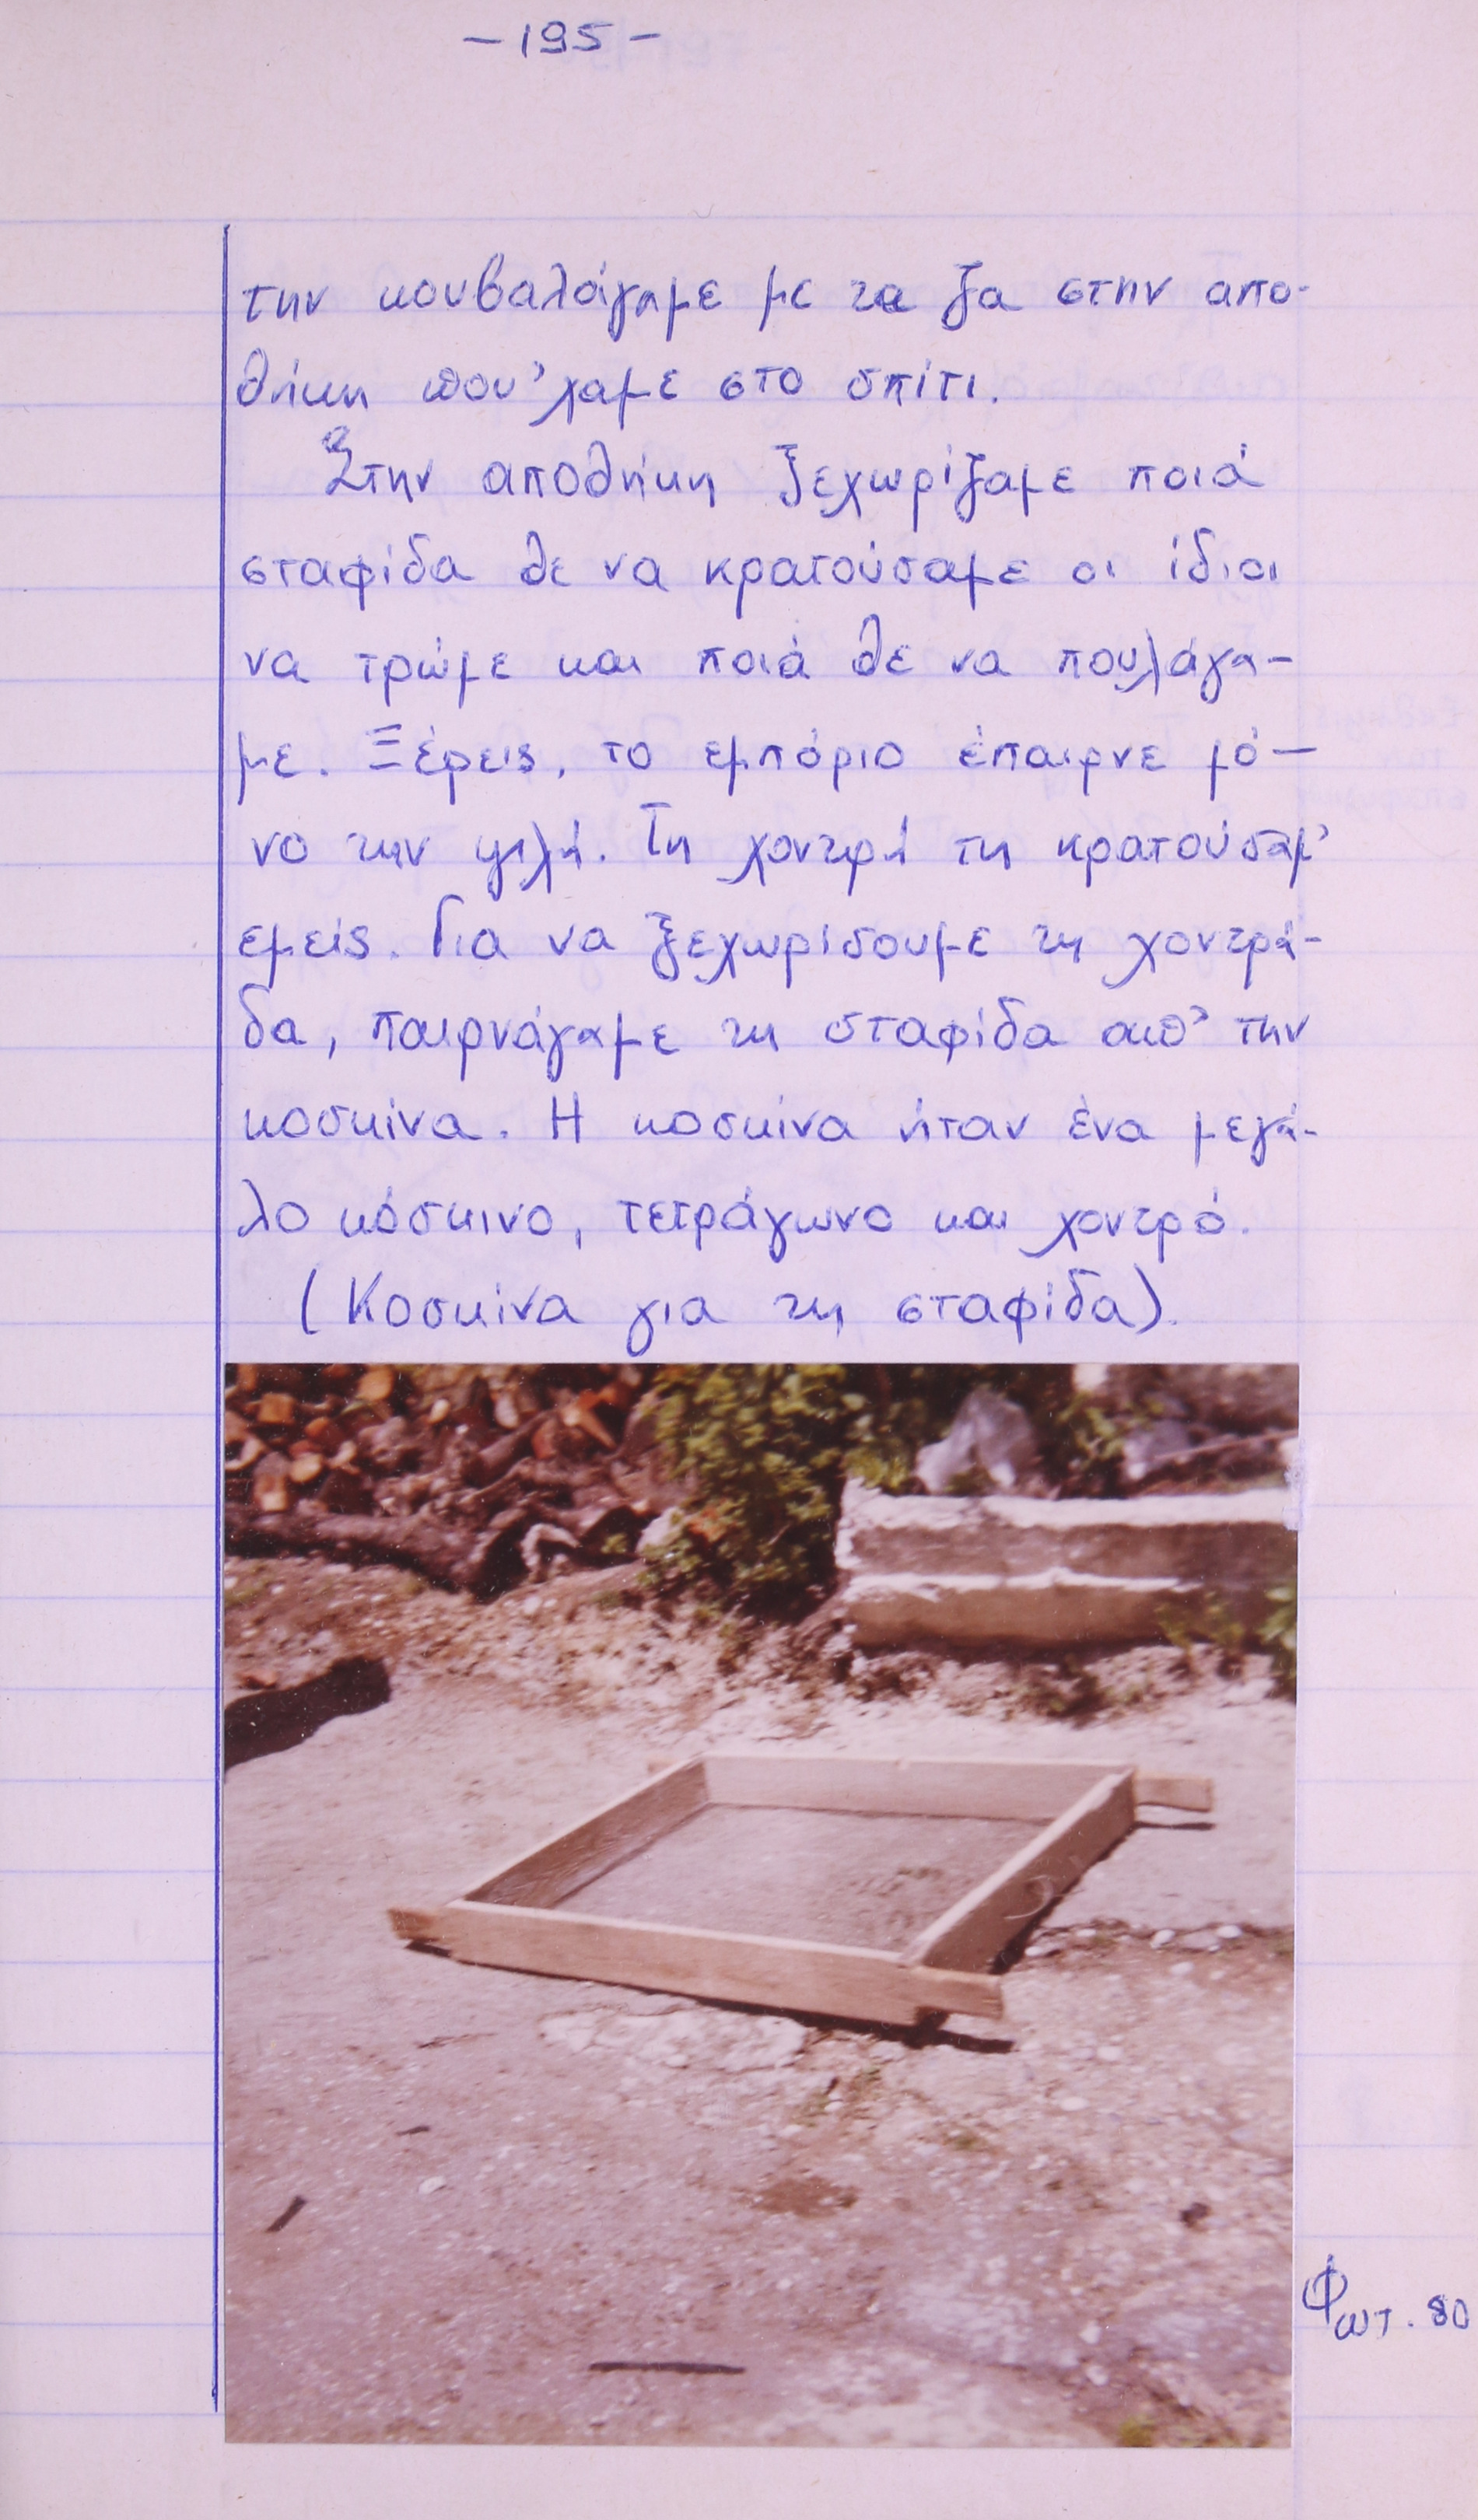 -195-
την κουβαλάγαμε με τα ζα στην απο-
θήκη που'χαμε στο σπίτι.
Στην αποθήκη ξεχωρίζαμε ποιά
σταφίδα θε να κρατούσαμε οι ίδιοι
να τρώμε και ποιά θε να πουλάγα-
με. Ξέρεις, το εμπόριο έπαιρνε μό-
νο την ψιλή. Τη χοντρή τη κρατούσαμ'
εμείς. Για να ξεχωρίσουμε τη χοντρά-
δα, παιρνάγαμε τη σταφίδα απ' την
κοσκίνα. Η κοσκίνα ήταν ένα μεγά-
λο κόσκινο, τετράγωνο και χοντρό.
(Κοσκίνα για τη σταφίδα).
Φωτ. 80